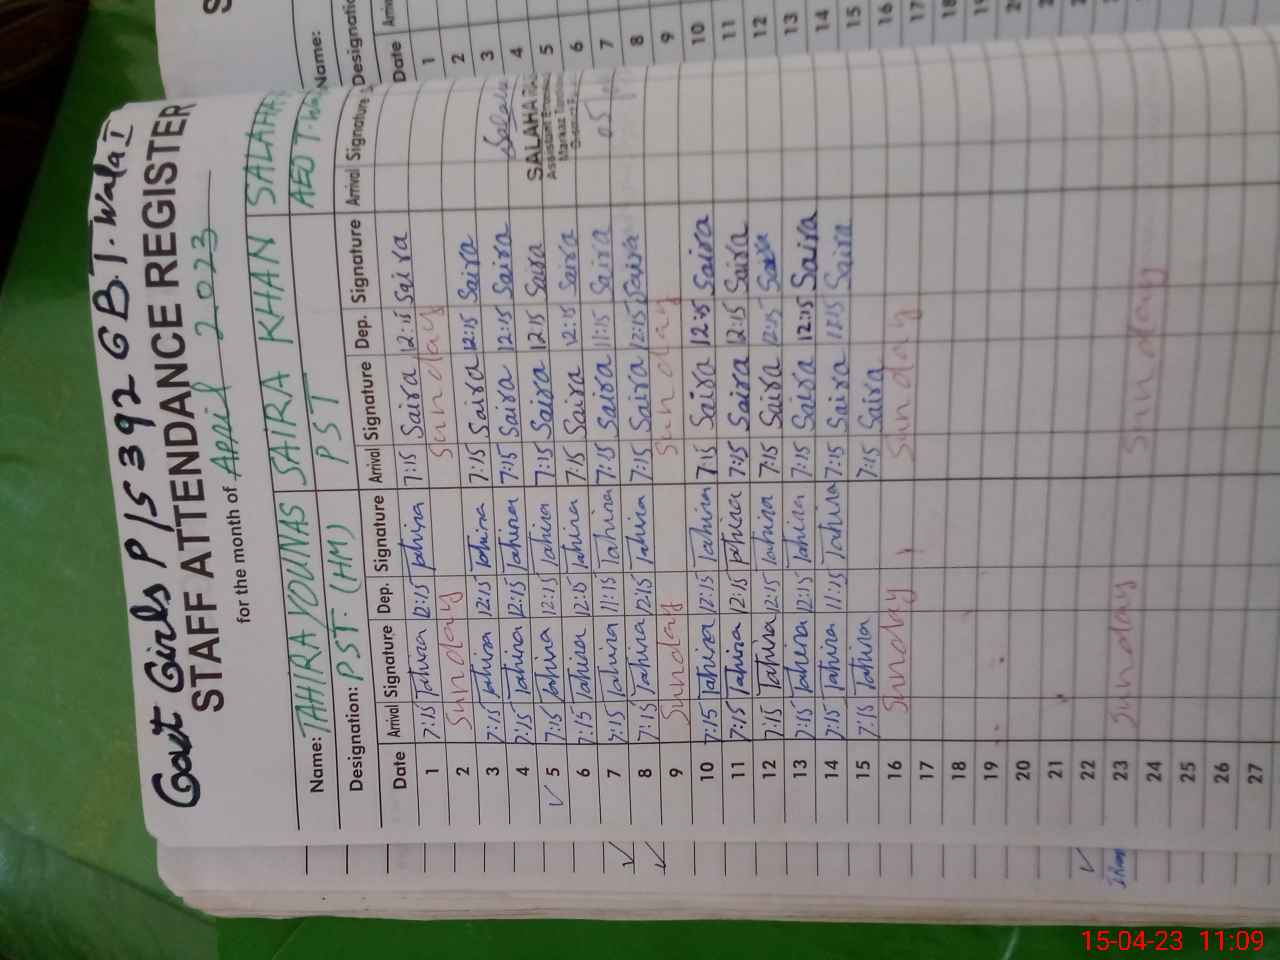 Govt Girls P/S 392 GB.T.Wala I
STAFF ATTENDANCE REGISTER
for the month of April 2023
Name: TAHIRA YOUNAS SAIRA KHAN
Designation: PST (HM) PST AEO
Date Arrival Signature Dep. Signature Arrival Signature Dep. Signature Arrival Signature
1 7:15 Tahira 12:15 Tahira 7:15 Saira 12:15 Saira
2 Sunday Sunday
3 7:15 Tahira 12:15 Tahira 7:15 Saira 12:15 Saira
4 7:15 Tahira 12:15 Tahira 7:15 Saira 12:15 Saira
5 7:15 Tahira 12:15 Tahira 7:15 Saira 12:15 Saira
6 7:15 Tahira 12:15 Tahira 7:15 Saira 12:15 Saira
7 7:15 Tahira 11:15 Tahira 7:15 Saira 11:15 Saira
8 7:15 Tahira 12:15 Tahira 7:15 Saira 12:15 Saira
9 Sunday Sunday
10 7:15 Tahira 12:15 Tahira 7:15 Saira 12:15 Saira
11 7:15 Tahira 12:15 Tahira 7:15 Saira 12:15 Saira
12 7:15 Tahira 12:15 Tahira 7:15 Saira 12:15 Saira
13 7:15 Tahira 12:15 Tahira 7:15 Saira 12:15 Saira
14 7:15 Tahira 11:15 Tahira 7:15 Saira 11:15 Saira
15 7:15 Tahira 7:15 Saira
16 Sunday Sunday
17
18
19
20
21
22
23 Sunday Sunday
24
25
26
27
Name:
Date
1
2
3
4
5
6
7
8
9
10
11
12
13
14
15
16
17
18
15-04-23 11:09